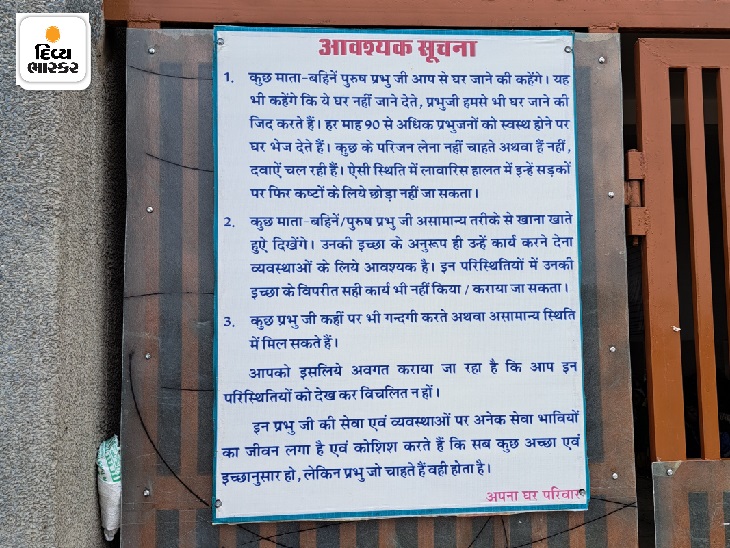 दिव्य
भास्कर
आवश्यक सूचना
1. कुछ माता-बहिनें पुरुष प्रभु जी आप से घर जाने की कहेंगे। यह
भी कहेंगे कि ये घर नहीं जाने देते, प्रभुजी हमसे भी घर जाने की
जिद करते हैं। हर माह 90 से अधिक प्रभुजनों को स्वस्थ होने पर
घर भेज देते हैं। कुछ के परिजन लेना नहीं चाहते अथवा हैं नहीं,
दवाऐं चल रही हैं। ऐसी स्थिति में लावारिस हालत में इन्हें सड़कों
पर फिर कष्टों के लिये छोड़ा नहीं जा सकता।
2. कुछ माता-बहिनें/पुरुष प्रभु जी असामान्य तरीके से खाना खाते
हुऐ दिखेंगे। उनकी इच्छा के अनुरूप ही उन्हें कार्य करने देना
व्यवस्थाओं के लिये आवश्यक है। इन परिस्थितियों में उनकी
इच्छा के विपरीत सही कार्य भी नहीं किया / कराया जा सकता।
3. कुछ प्रभु जी कहीं पर भी गन्दगी करते अथवा असामान्य स्थिति
में मिल सकते हैं।
आपको इसलिये अवगत कराया जा रहा है कि आप इन
परिस्थितियों को देख कर विचलित न हों।
इन प्रभु जी की सेवा एवं व्यवस्थाओं पर अनेक सेवा भावियों
का जीवन लगा है एवं कोशिश करते हैं कि सब कुछ अच्छा एवं
इच्छानुसार हो, लेकिन प्रभु जो चाहते हैं वही होता है।
अपना घर परिवार